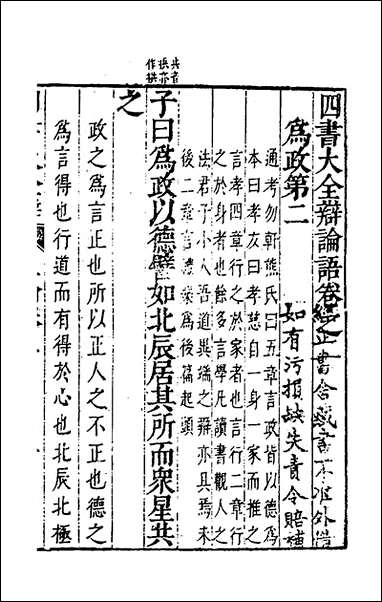 四書大全辯論語卷
經正書舍藏書不准外借
如有污損缺失責令賠補
為政第二
通考勿軒熊氏曰五章言政皆以德為
本曰孝友曰孝慈自一身一家而推之
言孝四章行之於家者也言行二章行
之於身者也餘多言學凡讀書觀人之
法君子小人吾道異端之辯亦具焉末
後二章言禮樂為後篇起頭
共音
拱亦
作拱
子曰為政以德譬如北辰居其所而衆星共
之
政之為言正也所以正人之不正也德之
為言得也行道而有得於心也北辰北極